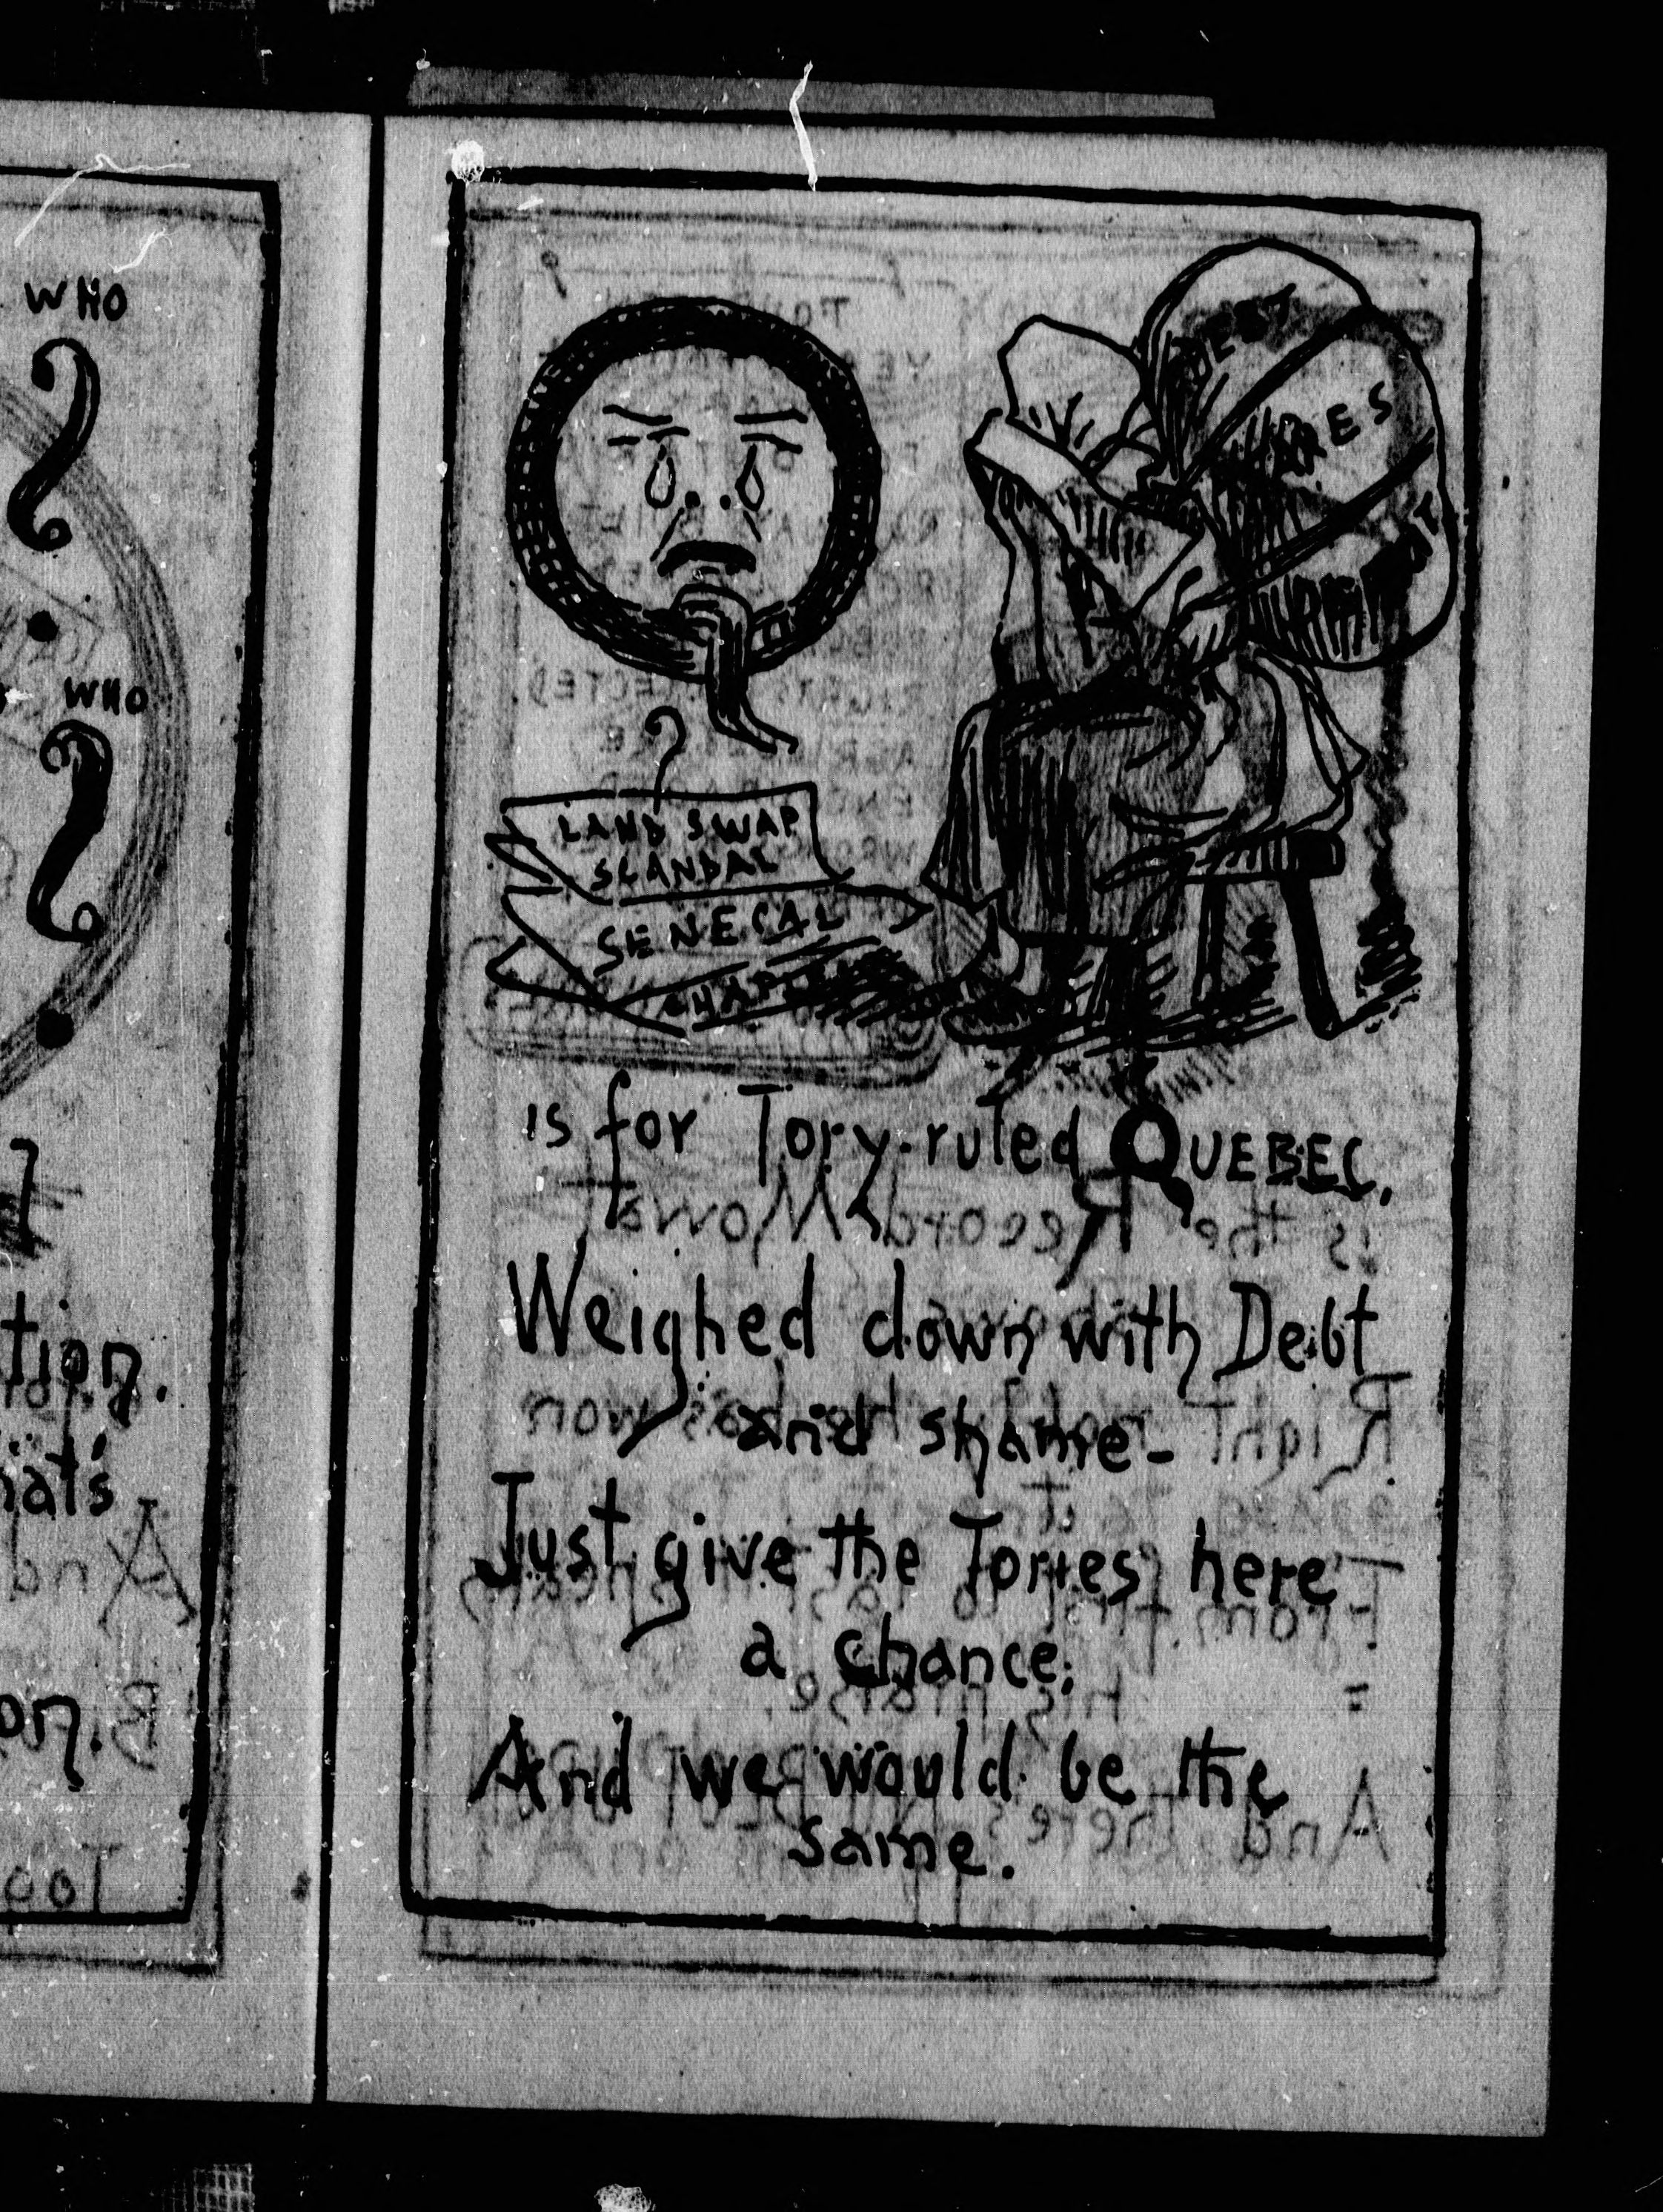 WHO
WHO
tion.
hat's
on.
DEBT
LAND SWAP
SCANDAL
SENECAL
is for Tory-ruled QUEBEC,
Weighed down with Debt
and shame-
Just give the Tories here
a chance;
And we would be the
same.